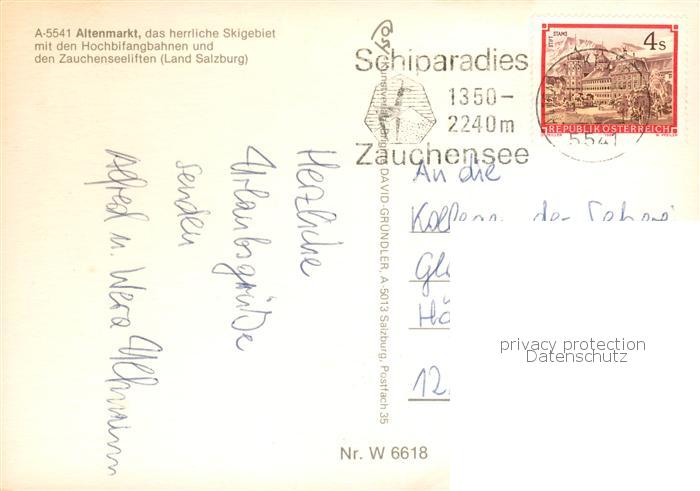 A-5541 Altenmarkt, das herrliche Skigebiet
mit den Hochbifangbahnen und
den Zauchenseeliften (Land Salzburg)
Schiparadies
1350-
2240m
Zauchensee
5541
STIFT STAMS
4s
REPUBLIK ÖSTERREICH
Herzliche
Urlaubsgrüße
senden
Alfred u. Wera
DAVID-GRÜNDLER, A-5013 Salzburg, Postfach 35
An die
der
12.
privacy protection
Datenschutz
Nr. W 6618